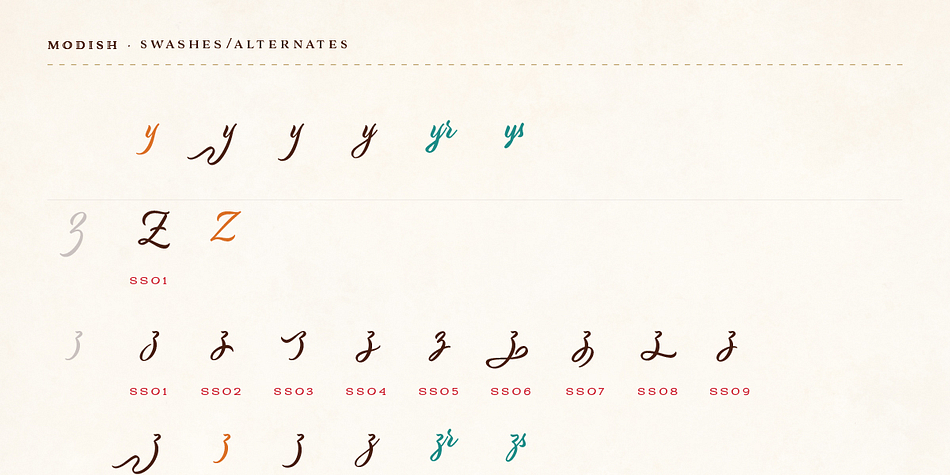 MODISH · SWASHES/ALTERNATES
y y y y yr ys
Z Z Z
SS01
z z z z z z z z z z
SS01 SS02 SS03 SS04 SS05 SS06 SS07 SS08 SS09
z z z z zr zs